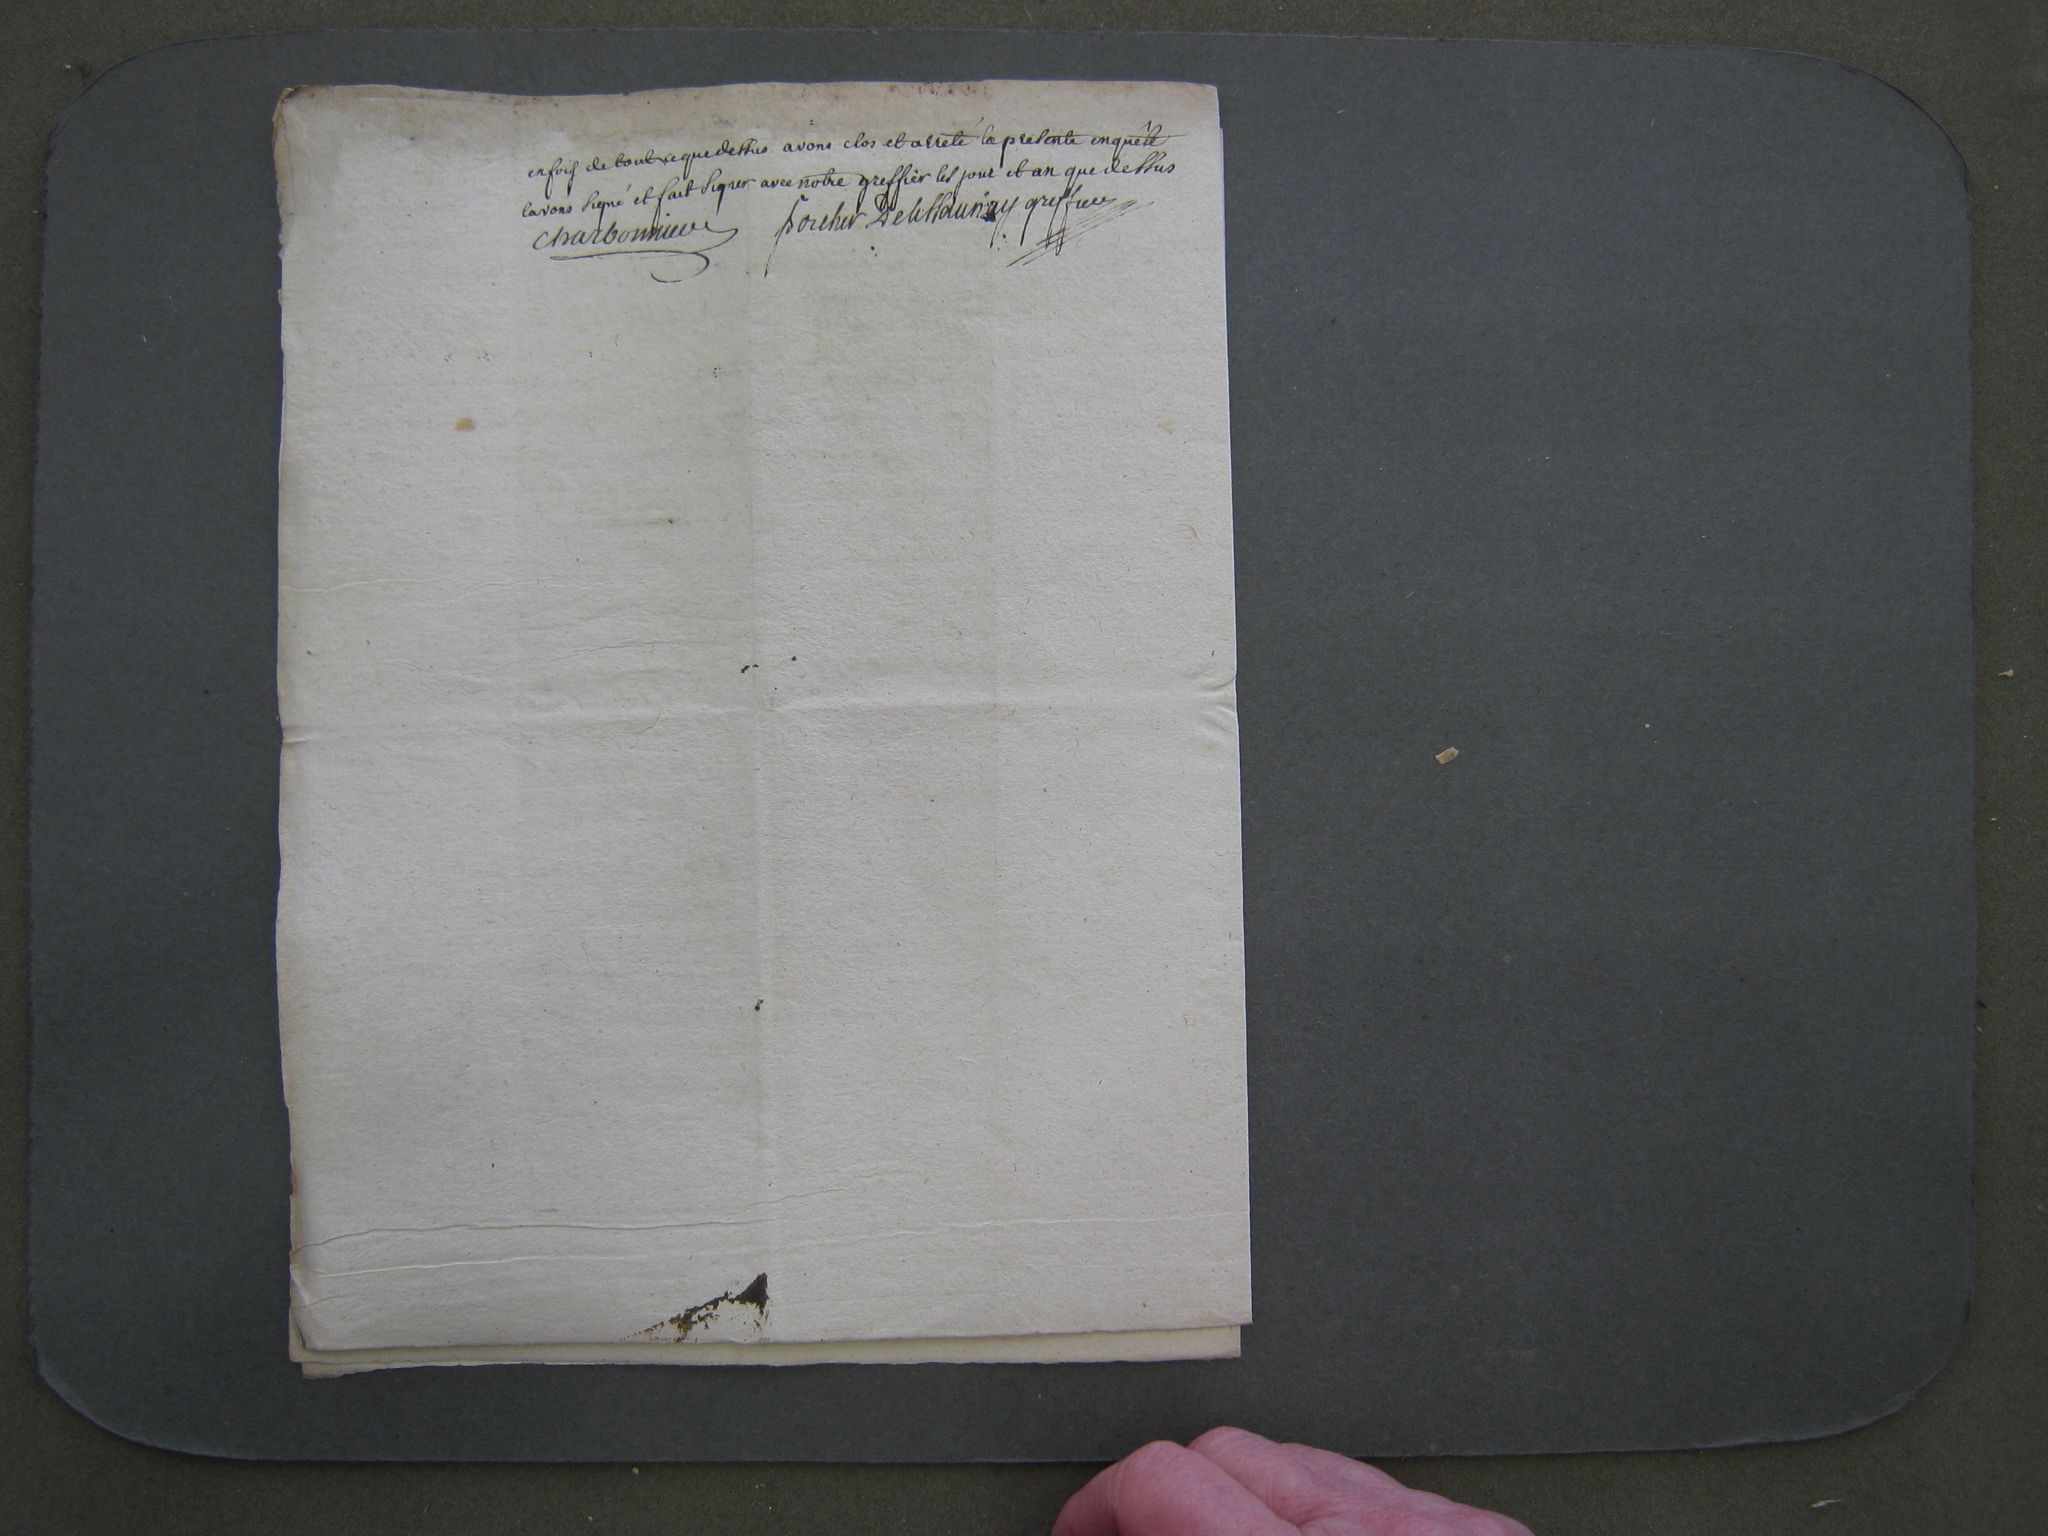 en foig de tout ce que dessus avons clos et arreté la presente enquête
lavons signé et fait signer avec notre greffier les jour et an que dessus
charbonnier porcher Delithaunay greffier